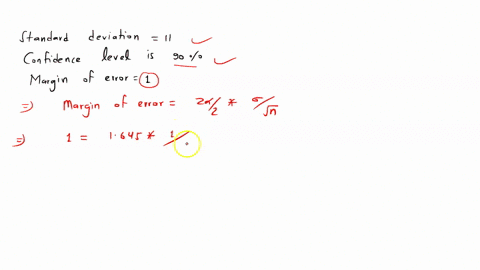 Standard deviation = 11
Confidence level is 90 %
Margin of error = 1
=) Margin of error = zα/2 * σ/√n
=) 1 = 1.645 * 1/